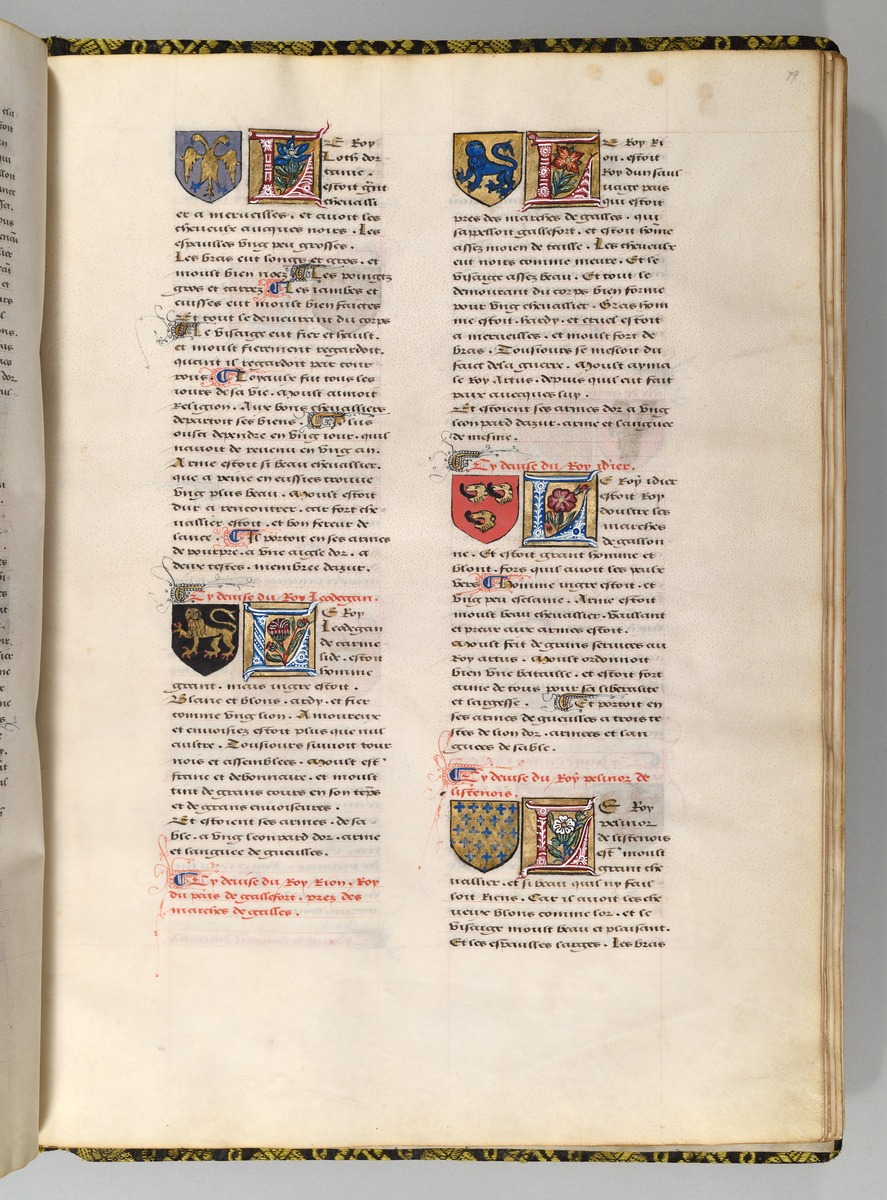 LE Roy
Loth dor
canie .
estoit grãt
chevalli
er a merveilles . et avoit les
cheveulx aucques noirs . Les
espaulles vng peu grosses .
Les bras eut longs et gros . et
moult bien noez Les poingz
gros et carrez Les iambes et
cuisses eut moult bien faictes
Et tout le demeurant du corps
Le visaige eut fier et hault .
et moult fierement regardoit .
quant il regardoit par cour
rous . Loyaulx fut tous les
iours de sa vie . Moult aimoit
Religion . Aux bons chevalliers
departoit ses biens . Plus
ousa dependre en vng iour . quil
nauoit de revenu en vng an .
Arme estoit si beau chevallier .
que a peine en eussies trouve
vng plus beau . Moult estoit
dur a rencontrer . car fort che
vallier estoit . et bon fereur de
lance . Il portoit en ses armes
de pourpre . a vne aigle dor . a
deux testes . membree dazur .
Cy devise du Roy Leodegan .
LE Roy
Leodegan
de carme
lide . estoit
homme
grant . mais ingre estoit .
Blanc et blons . ardy . et fier
comme vng lion . Amoureux
et envoisiez estoit plus que nul
aultre . Tousiours suivoit tour
nois et assemblees . Moult est'
franc et debonnaire . et moult
tint de grans cours en son tẽps
et de grans envoiseures .
Et estoient ses armes . de sa
ble . a vng leonpard dor . arme
et languee de gueulles .
Cy devise du Roy Rion . Roy
du païs de gallefort . prez des
marches de galles .
LE Roy Ri
on . estoit
Roy dun saul
vaige pais
qui estoit
pres des marches de galles . qui
sappelloit gallefort . et estoit hõme
assez moien de taille . Les cheveulx
eut noirs comme meure . Et le
visaige assez beau . Et tout le
demourant du corps bien forme
pour vng chevallier . Gras hom
me estoit . hardy . et cruel estoit
a merveilles . et moult fort de
bras . Tousiours se mesloit du
faict de la guerre . Moult ayma
le Roy Artus . depuis quil eut fait
paix avecques luy .
Et estoient ses armes dor a vng
leonpard dazur . arme et languee
de mesme .
Cy devise du Roy idier .
LE Roy idier
estoit Roy
doultre les
marches
de gallon
ne . Et estoit grant homme et
blont . fors quil avoit les yeulx
vers Homme ingre estoit . et
vng peu esclame . Arme estoit
moult beau chevallier . Vaillant
et preux aux armes estoit .
Moult feit de grans services au
Roy artus . Moult ordonnoit
bien vne bataille . et estoit fort
aime de tous pour sa liberalite
et largesse . Et portoit en
ses armes de gueulles a trois te
stes de lion dor . armees et lan
guees de sable .
Cy devise du Roy pelinor de
listenois .
LE Roy
pelinor
de listenois
est' moult
grant che
vallier . et si beau quil ny fail
loit Riens . Car il avoit les che
veux blons comme lor . et le
visaige moult beau et plaisant .
Et les espaulles larges . Les bras